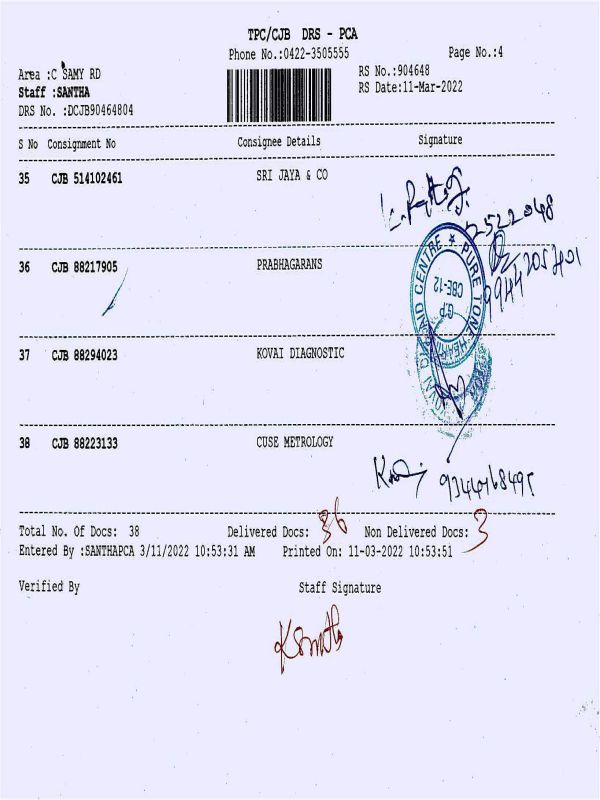 TPC/CJB DRS - PCA
Phone No.:0422-3505555 Page No.:4
Area :C SAMY RD RS No.:904648
Staff :SANTHA RS Date:11-Mar-2022
DRS No. :DCJB90464804
S No Consignment No Consignee Details Signature
35 CJB 514102461 SRI JAYA & CO
36 CJB 88217905 PRABHAGARANS
PURE TONE HEARING AID CENTRE
G.P
CBE-12
37 CJB 88294023 KOVAI DIAGNOSTIC
38 CJB 88223133 CUSE METROLOGY
Total No. Of Docs: 38 Delivered Docs: 36 Non Delivered Docs: 3
Entered By :SANTHAPCA 3/11/2022 10:53:31 AM Printed On: 11-03-2022 10:53:51
Verified By Staff Signature